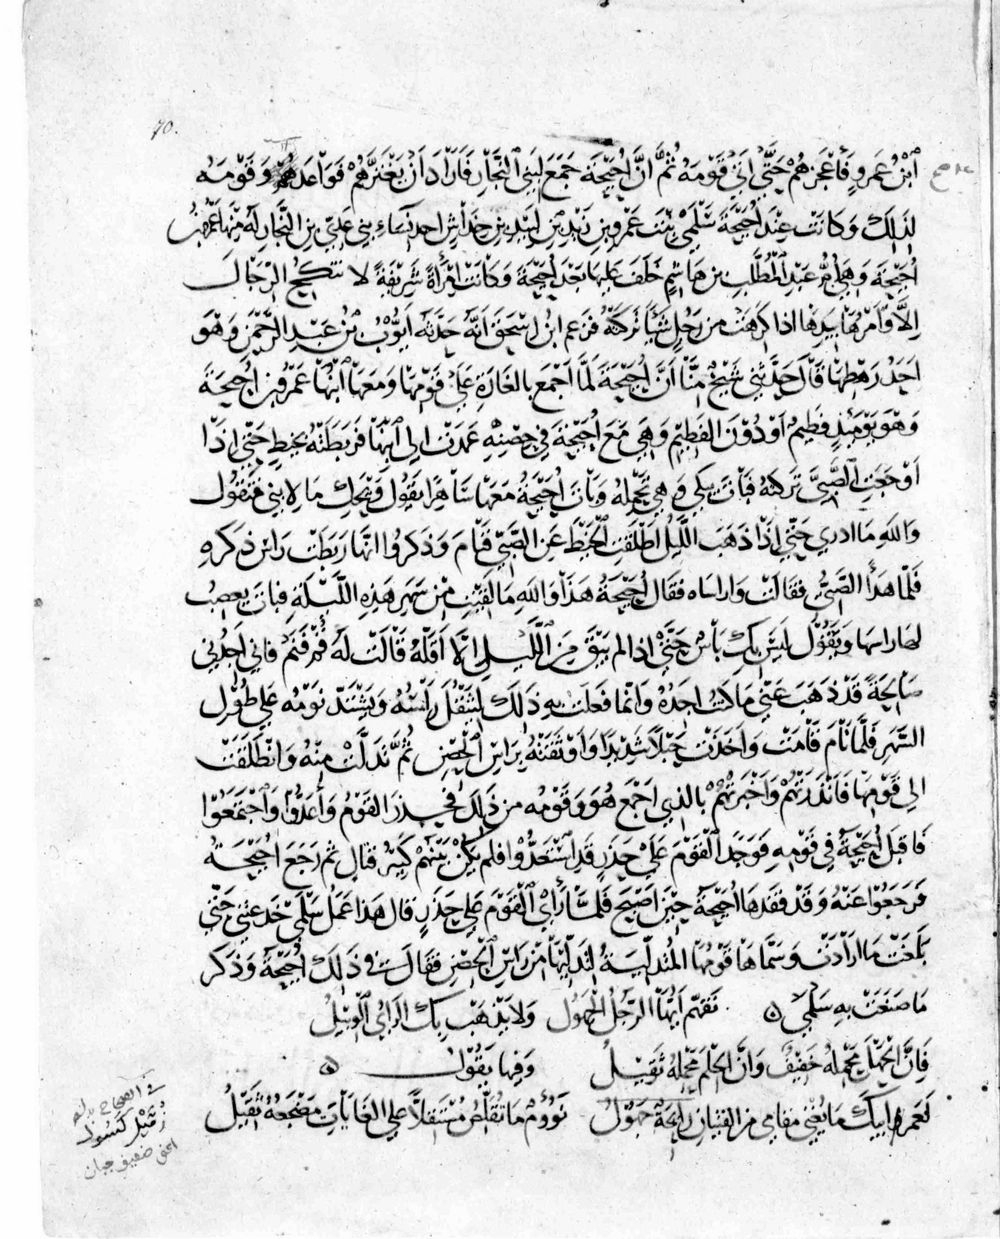 70.
ابْنُ عَمرٍو فَأَعْجَزهُمْ حَتَّى اتى قَوْمَهُ ثُمَّ انَّ اُحَيْحَةَ جَمَعَ لِبَنِي النَّجَّارِ فَارَادَ اَنْ يَغْتَرَّهُمْ فَوَاعَدَهُمْ وَقَوْمَهُ
لذَلِكَ وَكانَتْ عِنْدَ اُحَيْحَةَ سَلْمَى بِنْتَ عَمْرِو بن زَيْدِ بْنِ لَبِيْدِ بن خِدَاشٍ احد نِسَاءِ بني عَدِيّ بن النَّجَّارِ لَهُ مِنْهَا عَمْرُو بنُ
اُحَيْحَةَ وَهِيَ اُمُّ عَبْدِ الْمُطَّلِبِ بن هَاشِمٍ خَلَفَ عَلَيْهَا بَعْدَ اُحَيْحَةَ وَكانَتْ امْرَأَةً شَرِيْفَةً لا تَنْكِحُ الرِّجَالَ
اِلاَّ وَأمْرُهَا بِيَدِهَا اذا كَرِهَتْ من رَجُلٍ شَيْئًا تَرَكَتْهُ فَزَعم ابْنُ اِسْحَقَ انَّهُ حَدَّثَهُ ايُّوْبُ بْنُ عَبْدِ الرَّحْمَنِ وَهْوَ
اَحَدُ رَهْطِهَا قَالَ حَدَّثَنِي شَيْخٌ مِنَّا اَنَّ اُحَيْحَةَ لَمَّا اَجْمَعَ بالغَارَةِ عَلَى قَوْمِهَا وَمَعَهَا ابْنُهَا عَمْرُو بن اُحَيْحَةَ
وَهْوَ يَوْمَئِذٍ فَطِيمٌ اَوْ دُوْنَ الفَطِيْمِ وَهِيَ مَعَ اُحَيْحَةَ فِي حِصْنِهِ عَمَدَتْ الى ابْنِهَا فَرَبَطَتْهُ بخَيطٍ حَتَّى اِذَا
اَوْجَعَتِ الصَّبِيَّ تَرَكَتْهُ فَبَاتَ يَبْكي وَهِي تَحْمِلُهُ وَبَاتَ اُحَيْحَةُ مَعَهَا سَاهِرًا يَقُولُ وَيْحَكِ مَا لِابني فَتَقُوْلُ
وَاللهِ مَا ادري حَتَّى اِذَا ذَهَبَ اللَّيْلُ اَطْلَقَتِ الْخَيْطَ عَنِ الصَّبِيِّ فَنَامَ وَذَكَرُوا انَّهَا رَبَطَتْ رَاسَ ذَكَرِهِ
فَلَمَّا هَدَأَ الصَّبِيُّ فَقَالَتْ وَارَاسَاه فقَال اُحَيْحَةُ هَذَا وَاللهِ مَا لَقِيْتِ مِنْ سَهَرِ هَذِهِ اللَّيْلَةِ فباتَ يَعصِبُ
لهَا راسَهَا وَيَقُوْلُ لَيْسَ بِكِ بَأسٌ حَتَّى اذا لم يَبْقَ مِنَ اللَّيْلِ اِلَّا اَقَلَّهُ قَالَتْ لَهُ قُمْ فَنَمْ فَاني اَجِدُني
صَالِحَةً قَدْ ذَهَبَ عَنِّي مَا كُنْتُ اَجِدُهُ وَانَّما فَعلَتْ بِهِ ذَلِكَ لِيَثْقُلَ رَأْسُهُ وَيَشْتَدَّ نَوْمُهُ عَلَى طُوْلِ
السَّهَرِ فَلَمَّا نَامَ قَامَتْ وَاَخَذَتْ حَبْلاً شَدِيْدًا وَاَوْثَقَتْهُ بِرَاسِ الْحِصْنِ ثُمَّ تَدَلَّتْ مِنْهُ وَانْطَلَقَتْ
الى قَوْمِهَا فَاَنْذَرَتْهُمْ وَاَخْبَرَتْهُمْ بِالَّذِي اَجْمَعَ هُوَ وَقَوْمُه من ذَلِكَ فحَذِرَ القَوْمُ وَأَعَدُّوْا وَاجْتَمَعُوْا
فَاقبَلَ اُحَيْحَةُ فِي قَوْمِهِ فَوَجَدَ الْقَوْمَ عَلَى حَذَرٍ قَدِ اسْتَعَدُّوْا فلم يَكُنْ بَيْنَهُمْ كَبِيْرُ قتالٍ ثم رَجَعَ اُحَيْحَةُ
فَرَجَعُوْا عَنْهُ وَقَدْ فَقَدَهَا اُحَيْحَةُ حِيْنَ اَصْبَحَ فَلَمَّا رَأى الْقَوْمَ عَلى حَذَرٍ قال هَذا عَمَلُ سَلْمَى خَدَعَتْنِي حَتَّى
بَلَغَتْ مَا ارَادَتْ وَسَمَّاهَا قَوْمُهَا المُتَدَلِّيَةَ لِتَدَلِّيْهَا مِنْ رَاسِ الْحِصْنِ فَقَالَ فِي ذَلِكَ اُحَيْحَةُ وَذَكَرَ
مَا صَنَعَتْ بِهِ سَلْمَى ٥ تَفَهَّمْ اَيُّهَا الرَّجُلُ الْجَهُوْلُ وَلا يَذْهَبْ بِكَ الرَّأيُ الْوَبِيْلُ
فَاِنَّ الْجَهْلَ مَحْمِلُهُ خَفِيْفٌ وَانَّ الْحِلْمَ مَحْمِلُهُ ثَقِيْلُ وَفِيها يَقُوْلُ ٥
لَعَمرُ اَبِيْكَ مَا يُغْنِي مقَامِي من الفِتْيَانِ رَائِحَةٌ جَهُوْلُ نَوُوْمٌ مَا تُقَلِّصُ مُسْتَقِلاًّ عَلى الغَايَاتِ مَضْجَعُهُ ثَقِيْلُ
في الصحاح
زُمَّيْل كَسُول
ضعيف جبان